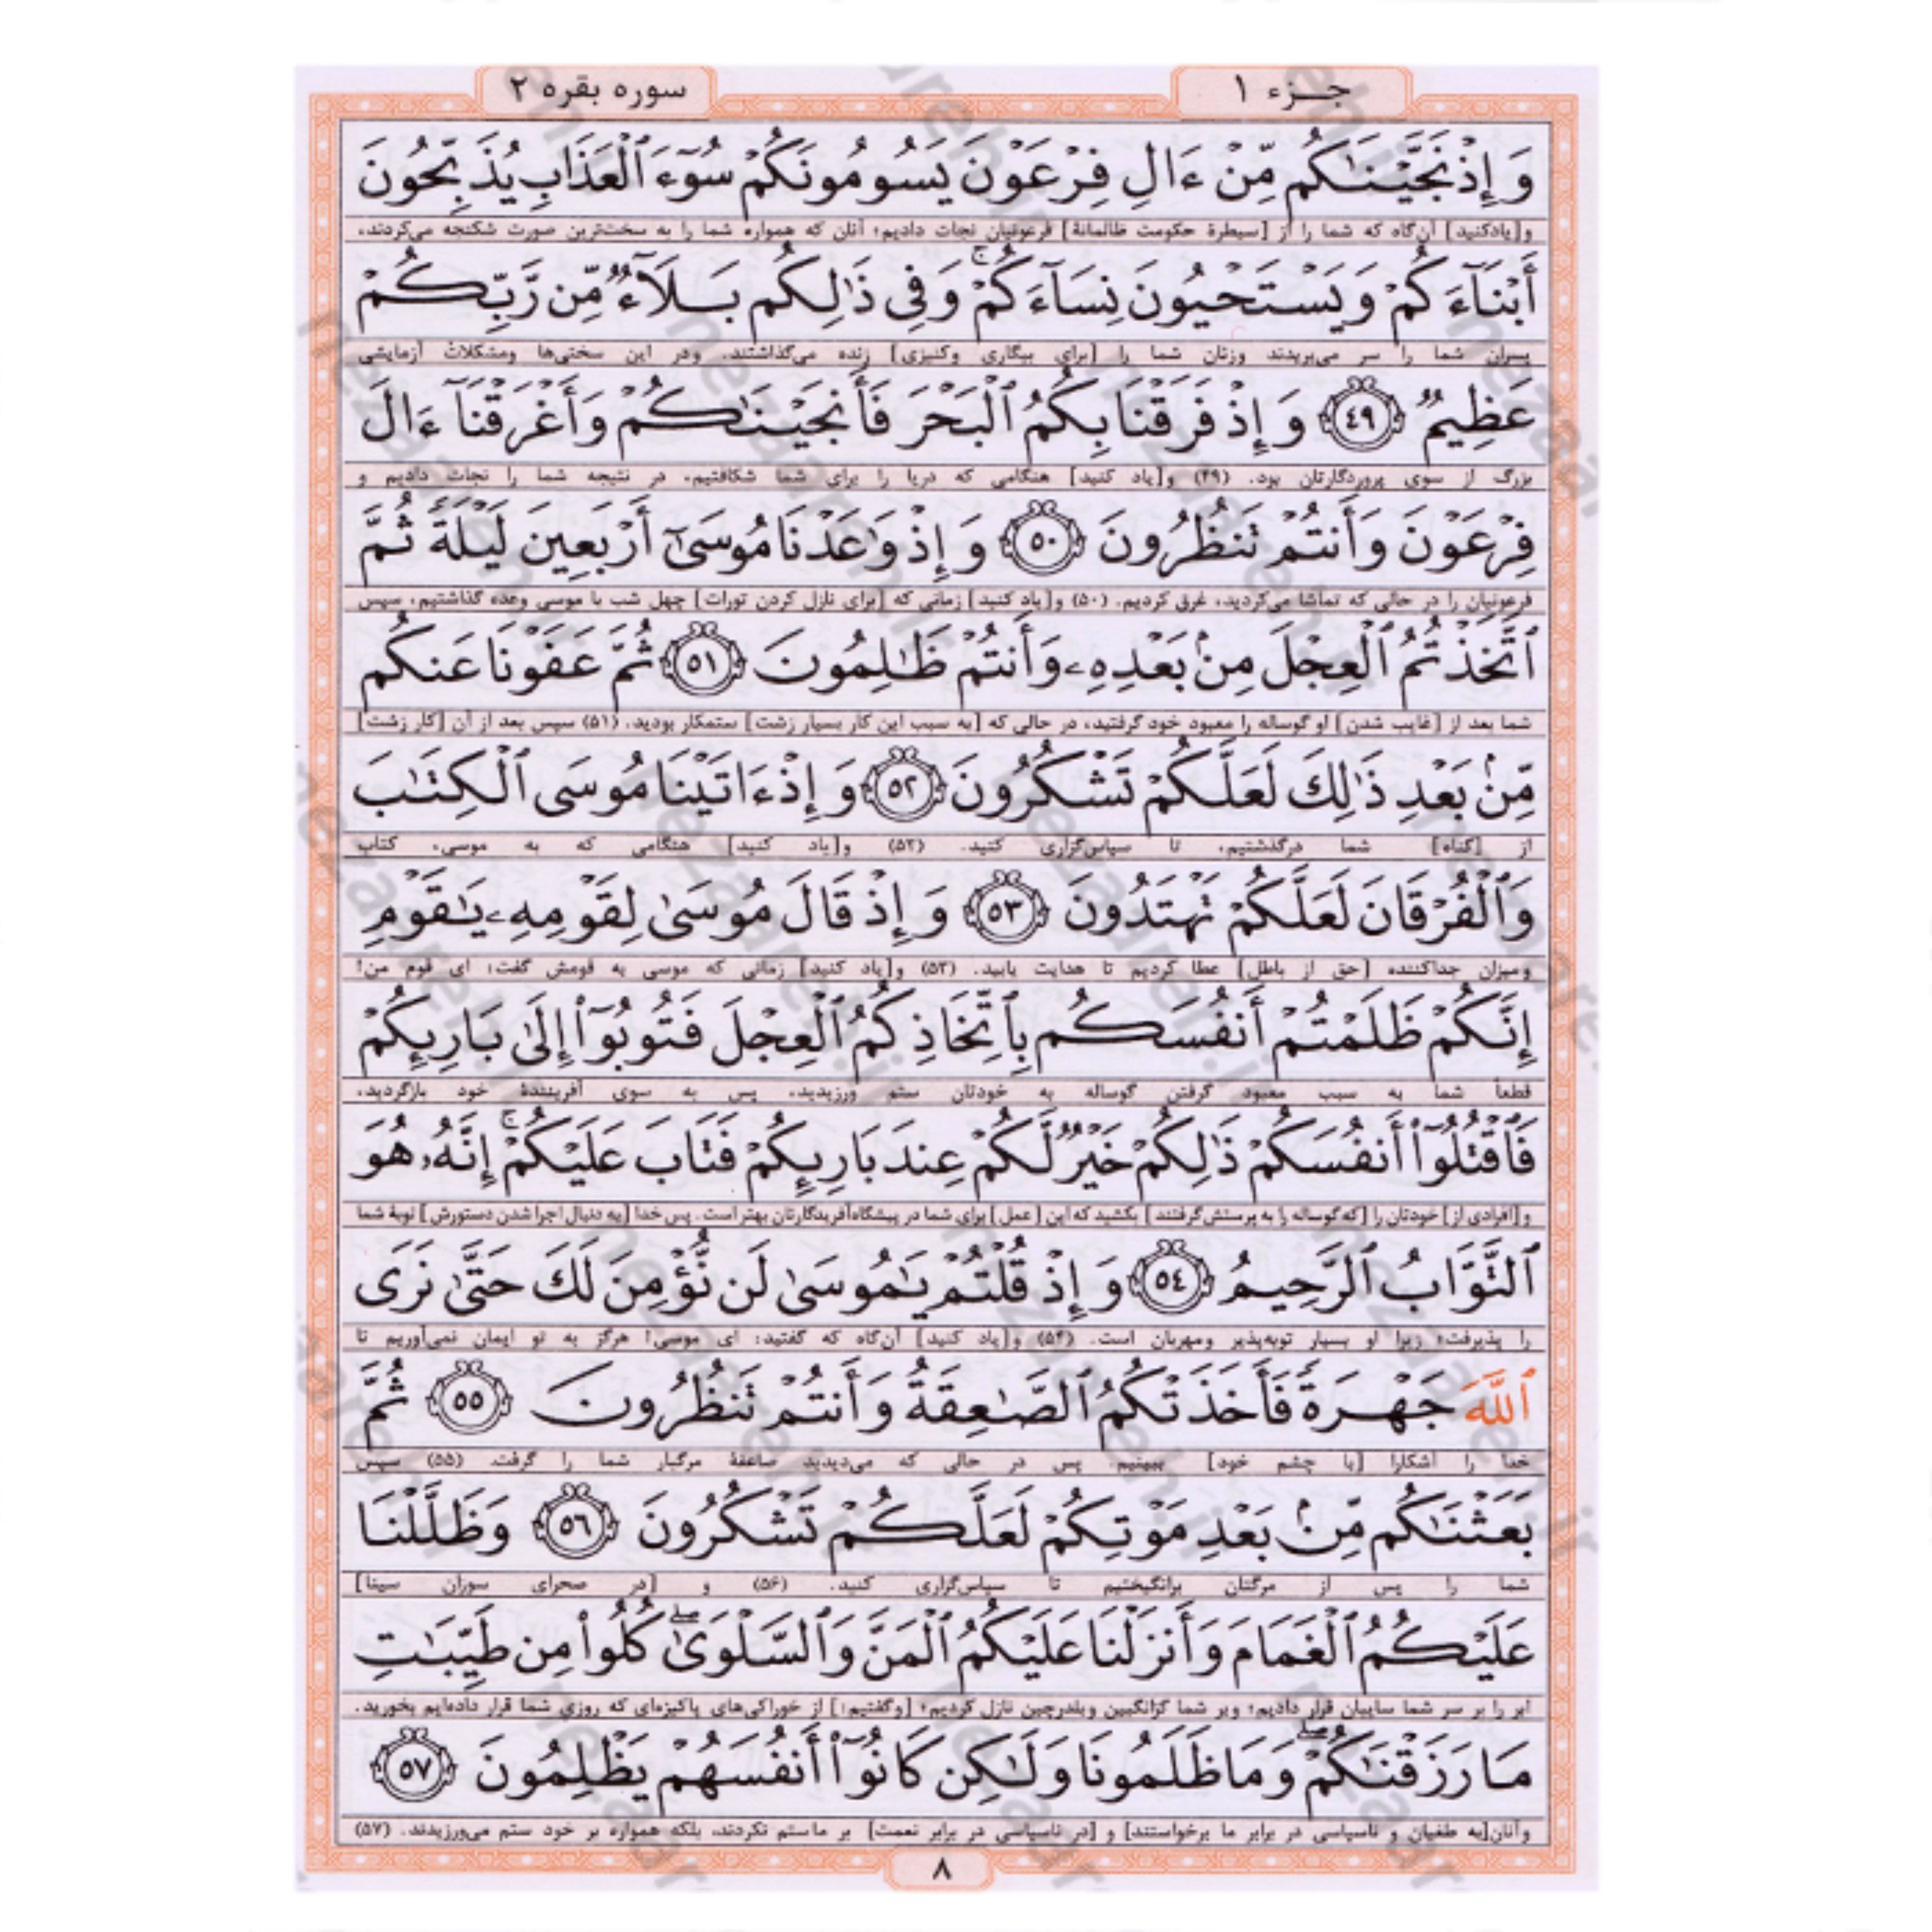 جزء ۱
سوره بقره ۲
وَإِذْ نَجَّيْنَٰكُم مِّنْ ءَالِ فِرْعَوْنَ يَسُومُونَكُمْ سُوٓءَ ٱلْعَذَابِ يُذَبِّحُونَ
و[یادکنید] آن‌گاه که شما را از [سیطرهٔ حکومت ظالمانهٔ] فرعونیان نجات دادیم؛ آنان که همواره شما را به سخت‌ترین صورت شکنجه می‌کردند،
أَبْنَآءَكُمْ وَيَسْتَحْيُونَ نِسَآءَكُمْ ۚ وَفِى ذَٰلِكُم بَلَآءٌ مِّن رَّبِّكُمْ
پسران شما را سر می‌بریدند وزنان شما را [برای بیگاری وکنیزی] زنده می‌گذاشتند. ودر این سختی‌ها ومشکلات آزمایشی
عَظِيمٌ ٤٩ وَإِذْ فَرَقْنَا بِكُمُ ٱلْبَحْرَ فَأَنجَيْنَٰكُمْ وَأَغْرَقْنَآ ءَالَ
بزرگ از سوی پروردگارتان بود. (۴۹) و[یاد کنید] هنگامی که دریا را برای شما شکافتیم، در نتیجه شما را نجات دادیم و
فِرْعَوْنَ وَأَنتُمْ تَنظُرُونَ ٥٠ وَإِذْ وَٰعَدْنَا مُوسَىٰٓ أَرْبَعِينَ لَيْلَةً ثُمَّ
فرعونیان را در حالی که تماشا می‌کردید، غرق کردیم. (۵۰) و[یاد کنید] زمانی که [برای نازل کردن تورات] چهل شب با موسی وعده گذاشتیم، سپس
ٱتَّخَذْتُمُ ٱلْعِجْلَ مِنۢ بَعْدِهِۦ وَأَنتُمْ ظَٰلِمُونَ ٥١ ثُمَّ عَفَوْنَا عَنكُم
شما بعد از [غایب شدن] او گوساله را معبود خود گرفتید، در حالی که [به سبب این کار بسیار زشت] ستمکار بودید. (۵۱) سپس بعد از آن [کار زشت]
مِّنۢ بَعْدِ ذَٰلِكَ لَعَلَّكُمْ تَشْكُرُونَ ٥٢ وَإِذْ ءَاتَيْنَا مُوسَى ٱلْكِتَٰبَ
از [گناه] شما درگذشتیم، تا سپاس‌گزاری کنید. (۵۲) و[یاد کنید] هنگامی که به موسی، کتاب
وَٱلْفُرْقَانَ لَعَلَّكُمْ تَهْتَدُونَ ٥٣ وَإِذْ قَالَ مُوسَىٰ لِقَوْمِهِۦ يَٰقَوْمِ
ومیزان جداکننده [حق از باطل] عطا کردیم تا هدایت یابید. (۵۳) و[یاد کنید] زمانی که موسی به قومش گفت: ای قوم من!
إِنَّكُمْ ظَلَمْتُمْ أَنفُسَكُم بِٱتِّخَاذِكُمُ ٱلْعِجْلَ فَتُوبُوٓا۟ إِلَىٰ بَارِئِكُمْ
قطعاً شما به سبب معبود گرفتن گوساله به خودتان ستم ورزیدید، پس به سوی آفرینندهٔ خود بازگردید،
فَٱقْتُلُوٓا۟ أَنفُسَكُمْ ذَٰلِكُمْ خَيْرٌ لَّكُمْ عِندَ بَارِئِكُمْ فَتَابَ عَلَيْكُمْ ۚ إِنَّهُۥ هُوَ
و[افرادی از] خودتان را [که گوساله را به پرستش گرفتند] بکشید که این [عمل] برای شما در پیشگاه آفریدگارتان بهتر است. پس خدا [به دنبال اجرا شدن دستورش] توبهٔ شما
ٱلتَّوَّابُ ٱلرَّحِيمُ ٥٤ وَإِذْ قُلْتُمْ يَٰمُوسَىٰ لَن نُّؤْمِنَ لَكَ حَتَّىٰ نَرَى
را پذیرفت؛ زیرا او بسیار توبه‌پذیر ومهربان است. (۵۴) و[یاد کنید] آن‌گاه که گفتید: ای موسی! هرگز به تو ایمان نمی‌آوریم تا
ٱللَّهَ جَهْرَةً فَأَخَذَتْكُمُ ٱلصَّٰعِقَةُ وَأَنتُمْ تَنظُرُونَ ٥٥ ثُمَّ
خدا را آشکارا [با چشم خود] ببینیم، پس در حالی که می‌دیدید صاعقهٔ مرگبار شما را گرفت. (۵۵) سپس
بَعَثْنَٰكُم مِّنۢ بَعْدِ مَوْتِكُمْ لَعَلَّكُمْ تَشْكُرُونَ ٥٦ وَظَلَّلْنَا
شما را پس از مرگتان برانگیختیم تا سپاس‌گزاری کنید. (۵۶) و [در صحرای سوزان سینا]
عَلَيْكُمُ ٱلْغَمَامَ وَأَنزَلْنَا عَلَيْكُمُ ٱلْمَنَّ وَٱلسَّلْوَىٰ ۖ كُلُوا۟ مِن طَيِّبَٰتِ
ابر را بر سر شما سایبان قرار دادیم؛ وبر شما گزانگبین وبلدرچین نازل کردیم؛ [وگفتیم:] از خوراکی‌های پاکیزه‌ای که روزی شما قرار داده‌ایم بخورید.
مَا رَزَقْنَٰكُمْ ۖ وَمَا ظَلَمُونَا وَلَٰكِن كَانُوٓا۟ أَنفُسَهُمْ يَظْلِمُونَ ٥٧
وآنان[به طغیان و ناسپاسی در برابر ما برخواستند] و [در ناسپاسی در برابر نعمت] بر ما ستم نکردند، بلکه همواره بر خود ستم می‌ورزیدند. (۵۷)
۸